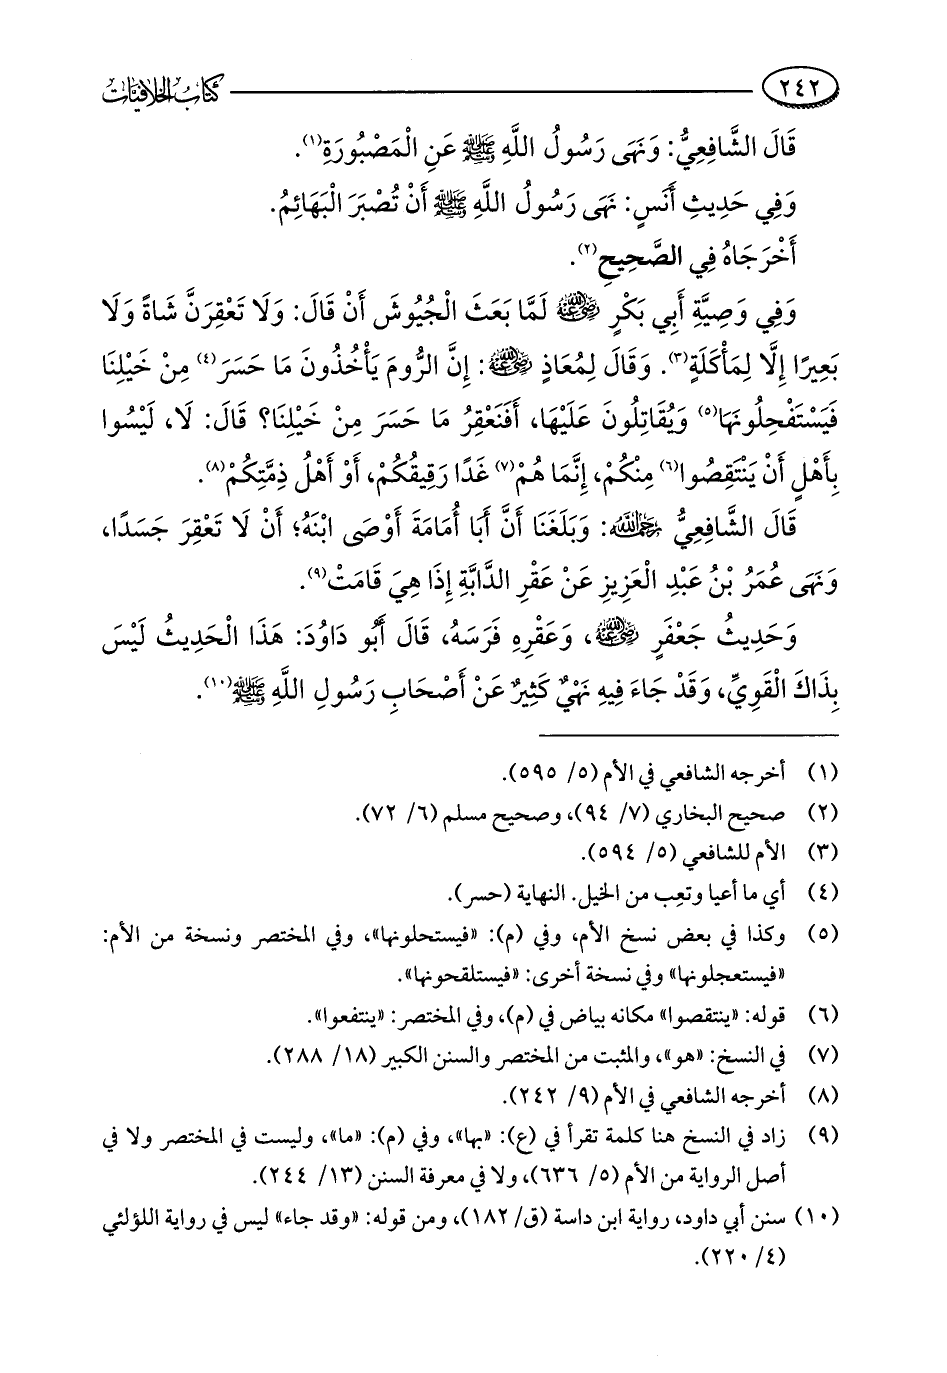 ٢٤٢ كتاب الخلافيات
قَالَ الشَّافِعِيُّ: وَنَهَى رَسُولُ اللَّهِ ﷺ عَنِ الْمَصْبُورَةِ(١).
وَفِي حَدِيثِ أَنَسٍ: نَهَى رَسُولُ اللَّهِ ﷺ أَنْ تُصْبَرَ الْبَهَائِمُ.
أَخْرَجَاهُ فِي الصَّحِيحِ(٢).
وَفِي وَصِيَّةِ أَبِي بَكْرٍ رضي الله عنه لَمَّا بَعَثَ الْجُيُوشَ أَنْ قَالَ: وَلَا تَعْقِرَنَّ شَاةً وَلَا
بَعِيرًا إِلَّا لِمَأْكَلَةٍ(٣). وَقَالَ لِمُعَاذٍ رضي الله عنه: إِنَّ الرُّومَ يَأْخُذُونَ مَا حَسَرَ(٤) مِنْ خَيْلِنَا
فَيَسْتَفْحِلُونَهَا(٥) وَيُقَاتِلُونَ عَلَيْهَا، أَفَنَعْقِرُ مَا حَسَرَ مِنْ خَيْلِنَا؟ قَالَ: لَا، لَيْسُوا
بِأَهْلٍ أَنْ يَنْتَقِصُوا(٦) مِنْكُمْ، إِنَّمَا هُمْ(٧) غَدًا رَقِيقُكُمْ، أَوْ أَهْلُ ذِمَّتِكُمْ(٨).
قَالَ الشَّافِعِيُّ رحمه الله: وَبَلَغَنَا أَنَّ أَبَا أُمَامَةَ أَوْصَى ابْنَهُ؛ أَنْ لَا تَعْقِرَ جَسَدًا،
وَنَهَى عُمَرُ بْنُ عَبْدِ الْعَزِيزِ عَنْ عَقْرِ الدَّابَّةِ إِذَا هِيَ قَامَتْ(٩).
وَحَدِيثُ جَعْفَرٍ رضي الله عنه، وَعَقْرِهِ فَرَسَهُ، قَالَ أَبُو دَاوُدَ: هَذَا الْحَدِيثُ لَيْسَ
بِذَاكَ الْقَوِيِّ، وَقَدْ جَاءَ فِيهِ نَهْيٌ كَثِيرٌ عَنْ أَصْحَابِ رَسُولِ اللَّهِ ﷺ(١٠).
(١) أخرجه الشافعي في الأم (٥/ ٥٩٥).
(٢) صحيح البخاري (٧/ ٩٤)، وصحيح مسلم (٦/ ٧٢).
(٣) الأم للشافعي (٥/ ٥٩٤).
(٤) أي ما أعيا وتعِب من الخيل. النهاية (حسر).
(٥) وكذا في بعض نسخ الأم، وفي (م): «فيستحلونها»، وفي المختصر ونسخة من الأم:
«فيستعجلونها» وفي نسخة أخرى: «فيستلقحونها».
(٦) قوله: «ينتقصوا» مكانه بياض في (م)، وفي المختصر: «ينتفعوا».
(٧) في النسخ: «هو»، والمثبت من المختصر والسنن الكبير (١٨/ ٢٨٨).
(٨) أخرجه الشافعي في الأم (٩/ ٢٤٢).
(٩) زاد في النسخ هنا كلمة تقرأ في (ع): «بها»، وفي (م): «ما»، وليست في المختصر ولا في
أصل الرواية من الأم (٥/ ٦٣٦)، ولا في معرفة السنن (١٣/ ٢٤٤).
(١٠) سنن أبي داود، رواية ابن داسة (ق/ ١٨٢)، ومن قوله: «وقد جاء» ليس في رواية اللؤلئي
(٤/ ٢٢٠).